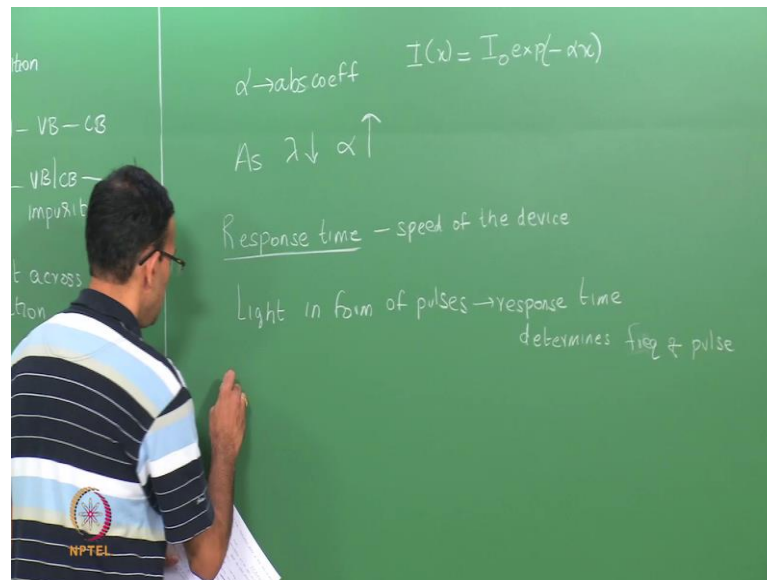 – VB – CB
VB/CB –
α → abs coeff
I(x) = I₀ exp(-αx)
As λ↓ α↑
Response time – speed of the device
Light in form of pulses → response time
determines freq of pulse
NPTEL